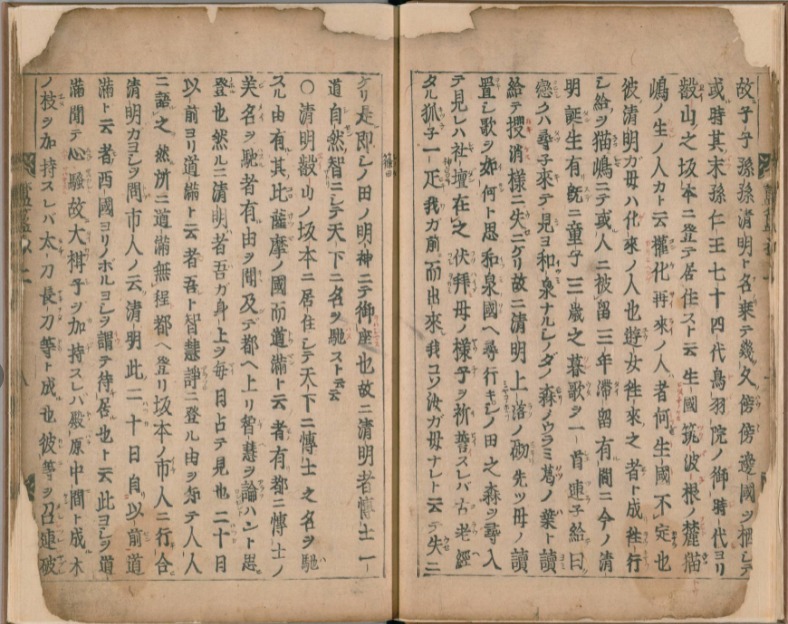 故子子孫孫清明ト名乗テ幾久傍傍邊國ヲ栖シテ
或時其末孫仁王七十四代鳥羽院ノ御時代ヨリ
殽山之坂本ニ登テ居住スト云生國筑波根ノ麓猫
嶋ノ生ノ人カト云權化再來ノ人者何生國不定也
彼清明カ母ハ化來ノ人也遊女徃來之者ト成徃行
シ給ヲ猫嶋ニテ或人ニ被留三年滯留有間ニ今ノ清
明誕生有既ニ童子三歳之暮歌ヲ一首連子給曰
戀クハ尋子來テ見ヨ和泉ナルシノダノ森ノウラミ葛ノ葉ト讀
給テ掻消樣ニ失ニケリ故ニ清明上落ノ砌先ツ母ノ讀
置シ歌ヲ如何ト思和泉國ヘ尋行キシノ田之森ヲ尋入
テ見レハ社壇在之伏拜母ノ樣子ヲ祈誓スレハ古老經
タル狐子一疋我カ前而出來我コソ汝カ母ナレト云テ失ニ
ケリ是即シノ田ノ明神ニテ御座也故ニ清明者博士一
道自然智ニシテ天下ニ名ヲ馳スト云云
○清明殽山ノ坂本ニ居住シテ天下ニ博士之名ヲ馳
スル由有其比薩摩ノ國而道滿ト云者有都ニ博士ノ
美名ヲ馳者有由ヲ聞及テ都ヘ上リ智慧ヲ論ハント思
登也然ルニ清明者吾カ身上ヲ毎日占テ見也二十日
以前ヨリ道滿ト云者吾ト智慧諍ニ登ル由ヲ知テ人人
ニ語之然所ニ道滿無程都ヘ登リ坂本ノ市人ニ行合
清明カヨシヲ問市人ノ云清明此二十日自以前道
滿ト云者西國ヨリノホルヨシヲ謂テ待居也ト云此ヨシヲ道
滿聞テ心騷故大柑子ヲ加持スレハ殿原中間ト成木
ノ枝ヲ加持スレハ太刀長刀等ト成也彼等ヲ召連破